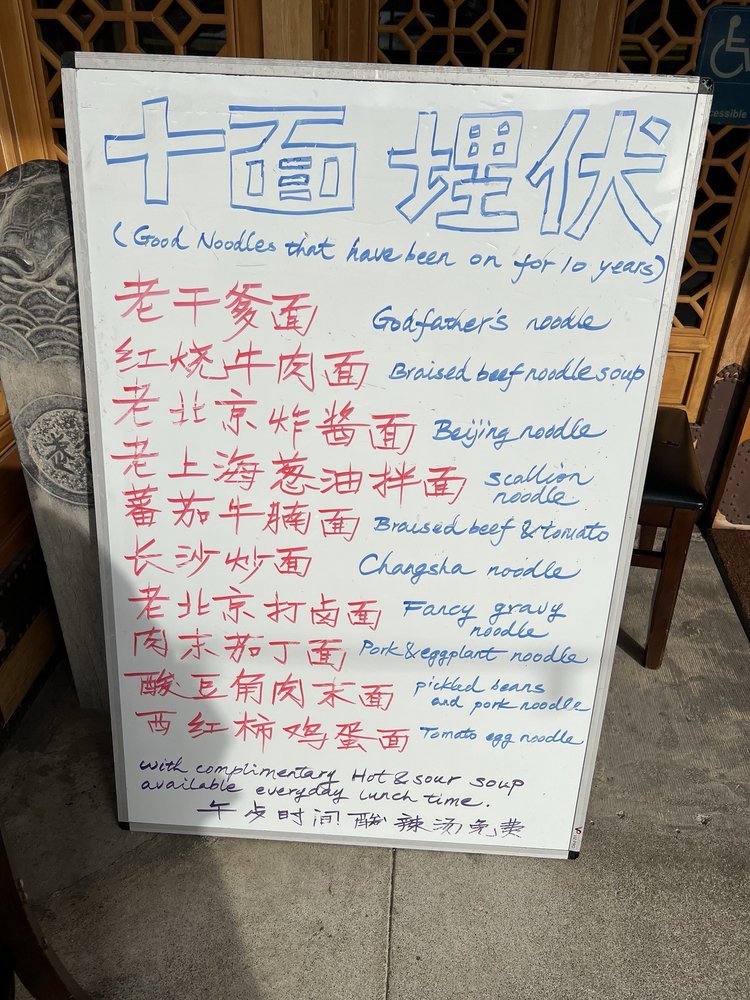 十面埋伏
(Good Noodles that have been on for 10 years)
老干爹面 Godfather's noodle
红烧牛肉面 Braised beef noodle soup
老北京炸酱面 Beijing noodle
老上海葱油拌面 scallion noodle
蕃茄牛腩面 Braised beef & tomato
长沙炒面 Changsha noodle
老北京打卤面 Fancy gravy noodle
肉末茄丁面 Pork & eggplant noodle
酸豆角肉末面 pickled beans and pork noodle
西红柿鸡蛋面 Tomato egg noodle
with complimentary Hot & sour soup
available everyday lunch time.
午歺时间酸辣汤免费
cessible